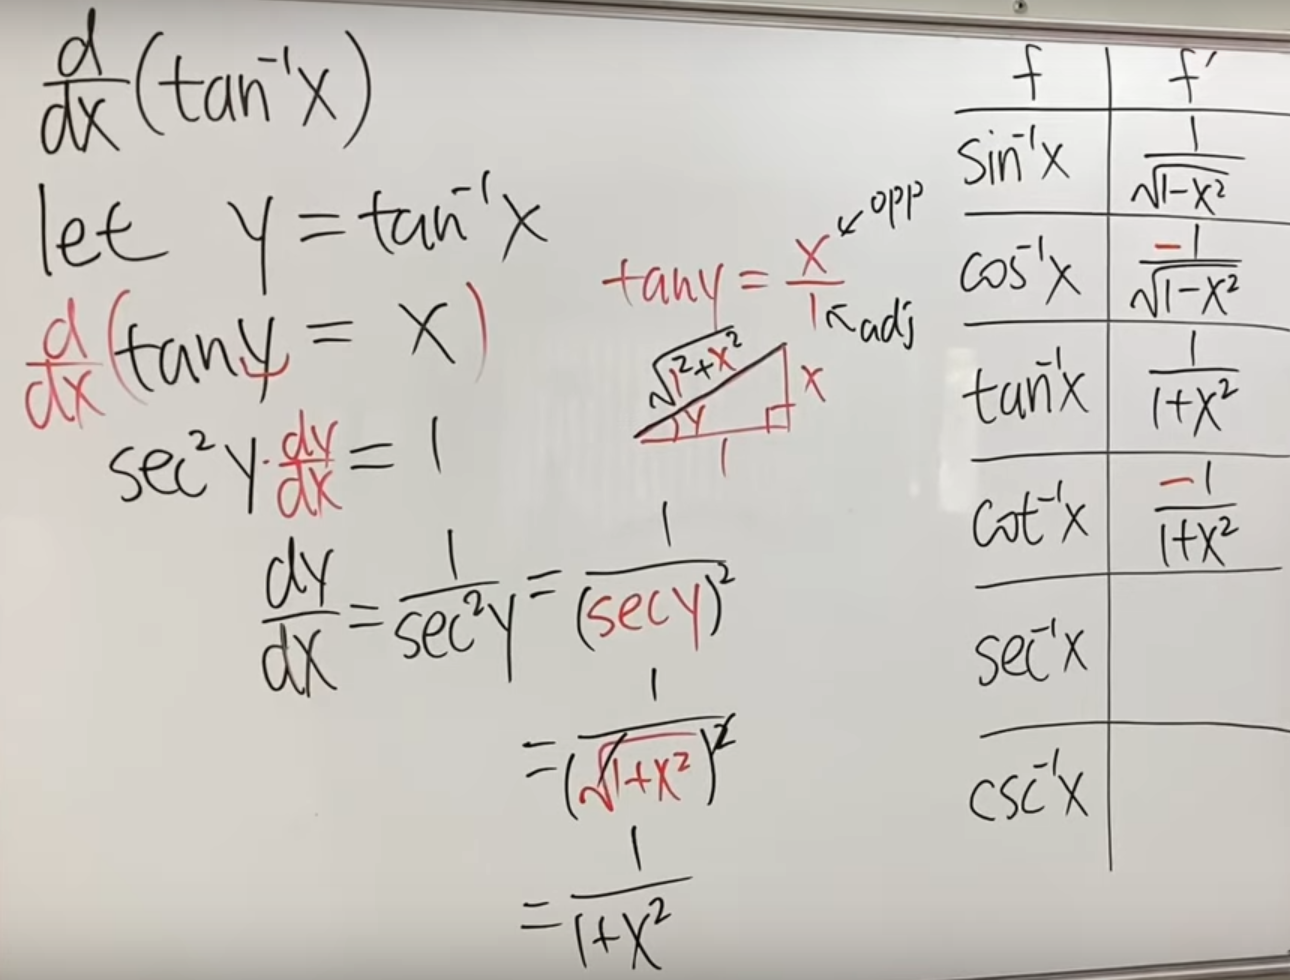 d/dx (tan⁻¹x)
let y = tan⁻¹x
d/dx (tany = x)
sec²y · dy/dx = 1
dy/dx = 1/sec²y = 1/(secy)²
= 1/(√1+x²)²
= 1/1+x²
tany = x/1 ↙ opp ↖ adj
√1²+x²
x
y
1
f | f′
sin⁻¹x | 1/√1-x²
cos⁻¹x | -1/√1-x²
tan⁻¹x | 1/1+x²
cot⁻¹x | -1/1+x²
sec⁻¹x
csc⁻¹x